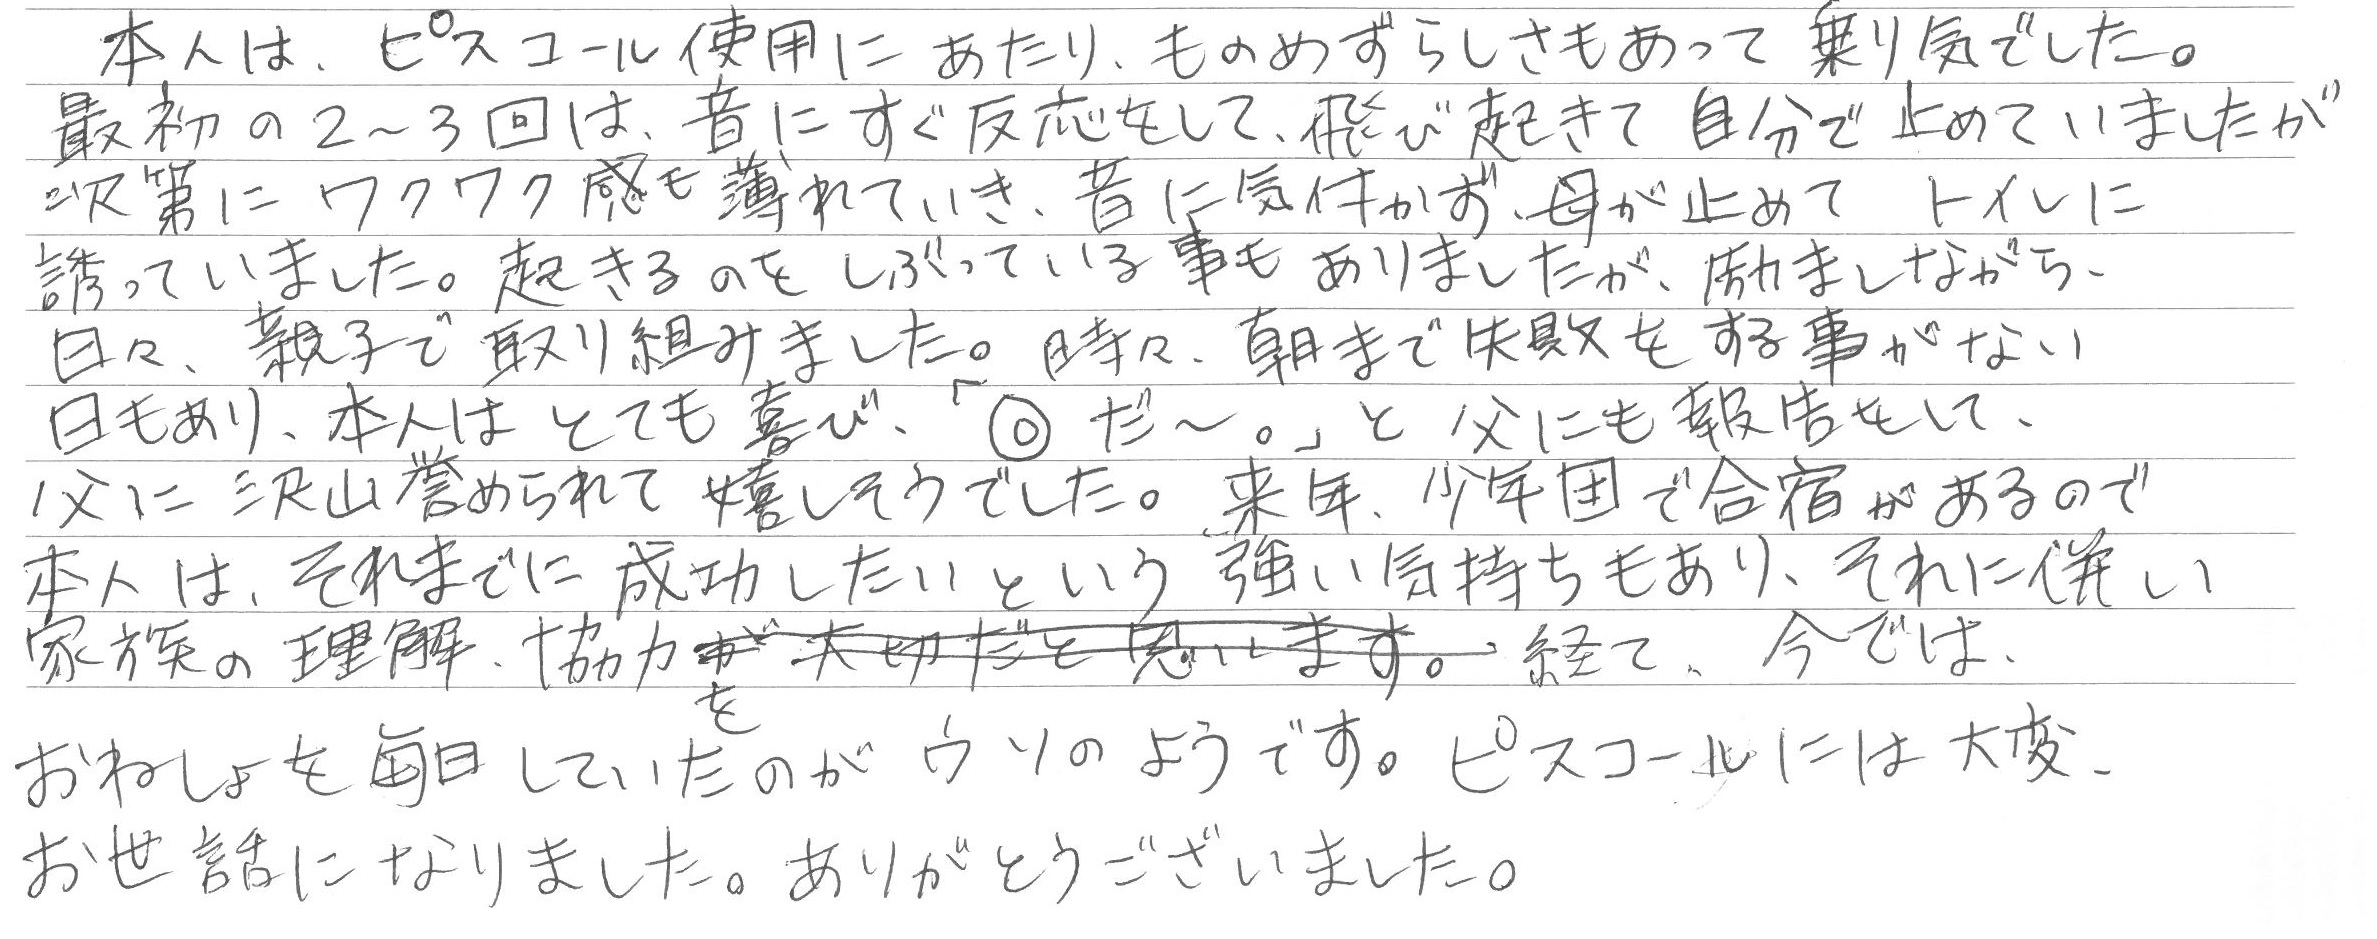 本人は、ピスコール使用にあたり、ものめずらしさもあって乗り気でした。
最初の2～3回は、音にすぐ反応をして、飛び起きて自分で止めていましたが
次第にワクワク感も薄れていき、音に気付かず、母が止めてトイレに
誘っていました。起きるのをしぶっている事もありましたが、励ましながら、
日々、親子で取り組みました。時々、朝まで失敗をする事がない
日もあり、本人はとても喜び、「◎だ～。」と父にも報告をして、
父に沢山誉められて嬉しそうでした。来年、少年団で合宿があるので
本人は、それまでに成功したいという強い気持ちもあり、それに伴い
家族の理解、協力が大切だと思います。経て、今では、
を
おねしょを毎日していたのがウソのようです。ピスコールには大変、
お世話になりました。ありがとうございました。